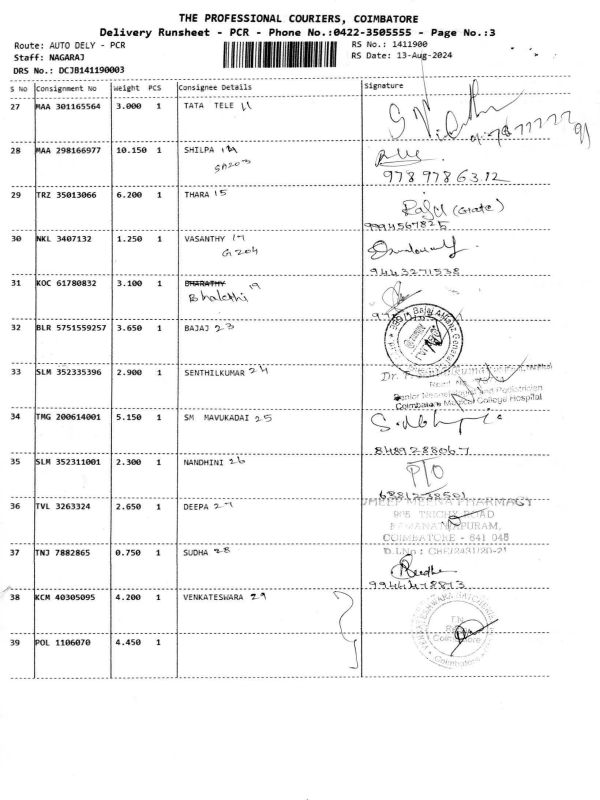 THE PROFESSIONAL COURIERS, COIMBATORE
Delivery Runsheet - PCR - Phone No.:0422-3505555 - Page No.:3
Route: AUTO DELY - PCR
RS No.: 1411900
Staff: NAGARAJ
RS Date: 13-Aug-2024
DRS No.: DCJB141190003
S No Consignment No Weight PCS Consignee Details Signature
27 MAA 301165564 3.000 1 TATA TELE 11
28 MAA 298166977 10.150 1 SHILPA
9789786312
29 TRZ 35013066 6.200 1 THARA 15
Raju (Gate)
9994567825
30 NKL 3407132 1.250 1 VASANTHY 17
G 204
9443271538
31 KOC 61780832 3.100 1 BHARATHY 19
Bhalethi
32 BLR 5751559257 3.650 1 BAJAJ 23
Bajaj Allianz General
33 SLM 352335396 2.900 1 SENTHILKUMAR 24
Dr.
Senior Neonatologist and Pediatrician
Coimbatore Medical College Hospital
34 TMG 200614001 5.150 1 SM MAVUKADAI 25
8489288067
35 SLM 352311001 2.300 1 NANDHINI 26
PTO
6381238501
36 TVL 3263324 2.650 1 DEEPA 27
MEENA PHARMACY
TRICHY ROAD
RAMANATHAPURAM,
COIMBATORE - 641 045
37 TNJ 7882865 0.750 1 SUDHA 28
D.I.No : CHE/2431/20-21
9944478873
38 KCM 40305095 4.200 1 VENKATESWARA 29
39 POL 1106070 4.450 1
Coimbatore